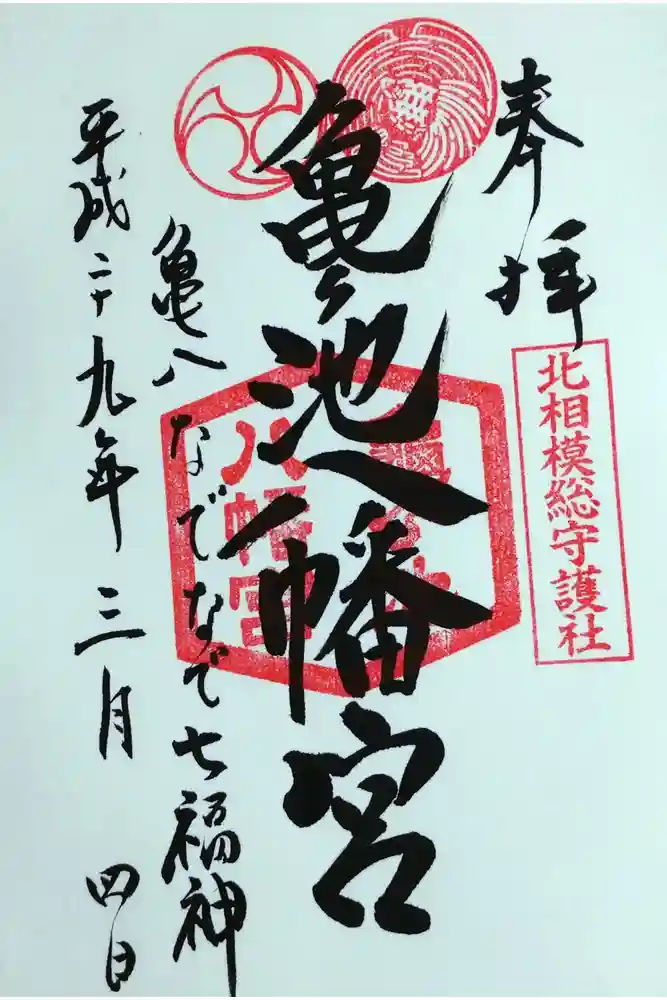 奉拝
北相模総守護社
亀ヶ池八幡宮
八幡宮
亀八なでなで七福神
平成二十九年三月四日